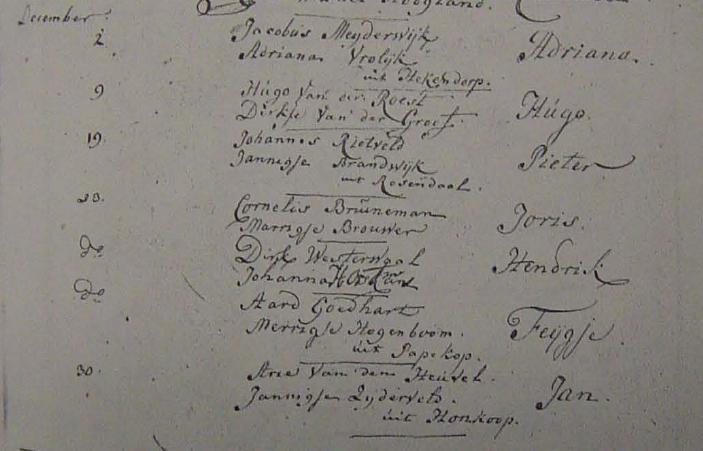 December.
2 Jacobus Meyderwijk Adriana.
Adriana Vrolijk
uit Hekendorp.
9 Hugo Van der Roest Hugo.
Dirkje Van der Groef.
19. Johannes Rietveld Pieter
Jannigje Brandwijk
uit Rosendaal.
23. Cornelis Bruineman Joris.
Marrigje Brouwer
do Dirk Westerwaal Hendrik
Johanna
do Aard Goedhart Feygje.
Merrigje Hogenboom.
uit Papekop.
30. Arie Van den Heuvel. Jan.
Jannigje Zyderveld.
uit Honkoop.